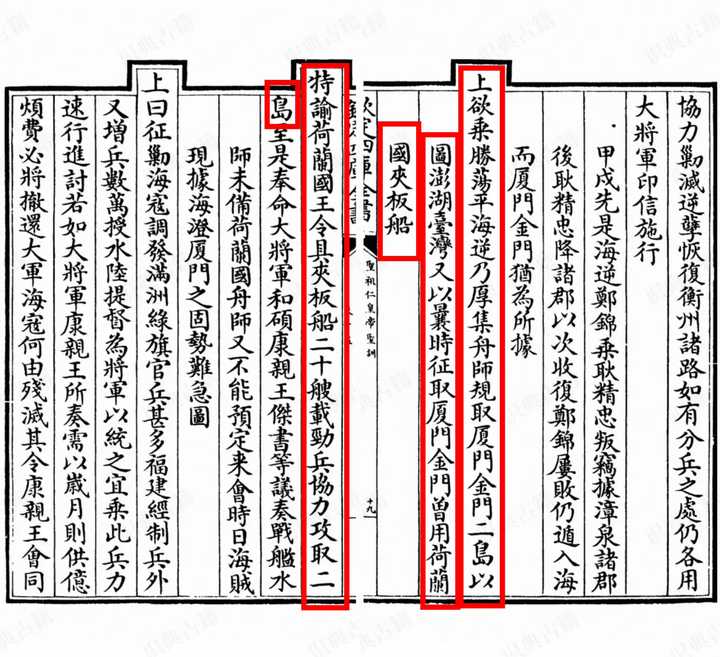 協力勦滅逆孽恢復衡州諸路如有分兵之處仍各用
大將軍印信施行
甲戌先是海逆鄭錦乘耿精忠叛竊據漳泉諸郡
後耿精忠降諸郡以次收復鄭錦屢敗仍遁入海
而厦門金門猶為所據
上欲乘勝蕩平海逆乃厚集舟師規取厦門金門二島以
圖澎湖臺灣又以曩時征取厦門金門曾用荷蘭
國夾板船
欽定四庫全書
聖祖仁皇帝聖訓
十九
特諭荷蘭國王令具夾板船二十艘載勁兵協力攻取二
島至是奉命大將軍和碩康親王傑書等議奏戰艦水
師未備荷蘭國舟師又不能預定来會時日海賊
現據海澄厦門之固勢難急圖
上曰征勦海寇調發滿洲綠旗官兵甚多福建經制兵外
又增兵數萬授水陸提督為將軍以統之宜乘此兵力
速行進討若如大將軍康親王所奏需以嵗月則供億
煩費必將撤還大軍海寇何由殘滅其令康親王會同